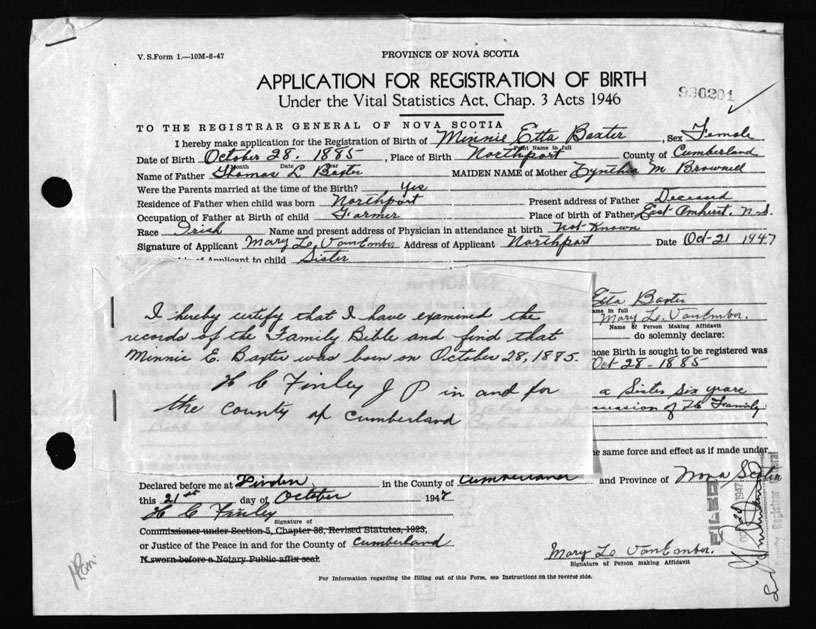 V. S. Form 1.—10M-8-47
PROVINCE OF NOVA SCOTIA
APPLICATION FOR REGISTRATION OF BIRTH
Under the Vital Statistics Act, Chap. 3 Acts 1946
TO THE REGISTRAR GENERAL OF NOVA SCOTIA
I hereby make application for the Registration of Birth of Minnie Etta Baxter, Sex Female
Print Name in full
Date of Birth October 28. 1885, Place of Birth Northport County of Cumberland
Month Date
Name of Father Thomas L Baxter MAIDEN NAME of Mother Cynthia M
Were the Parents married at the time of the Birth? Yes
Residence of Father when child was born Northport Present address of Father Deceased
Occupation of Father at Birth of child Farmer Place of birth of Father East Amherst, N.S.
Race Irish Name and present address of Physician in attendance at birth Not Known
Signature of Applicant Mary Address of Applicant Northport Date Oct-21 1947
of Applicant to child Sister
I hereby certify that I have examined the
records of the Family Bible and find that
Minnie E. Baxter was born on October 28, 1885.
H C Finley J P in and for
the County of Cumberland
Etta Baxter
ame in full
Mary
Name of Person Making Affidavit
do solemnly declare:
hose Birth is sought to be registered was
Oct 28-1885
a Sister Six years
session of the Family
he same force and effect as if made under
Declared before me at in the County of Cumberland and Province of Nova Scotia
this 21st day of October 1947
H C Finley
Signature of
Commissioner under Section 5, Chapter 38, Revised Statutes, 1923,
or Justice of the Peace in and for the County of Cumberland
If sworn before a Notary Public affix seal.
Mary
Signature of Person making Affidavit
For Information regarding the filling out of this Form, see Instructions on the reverse side.
FILED